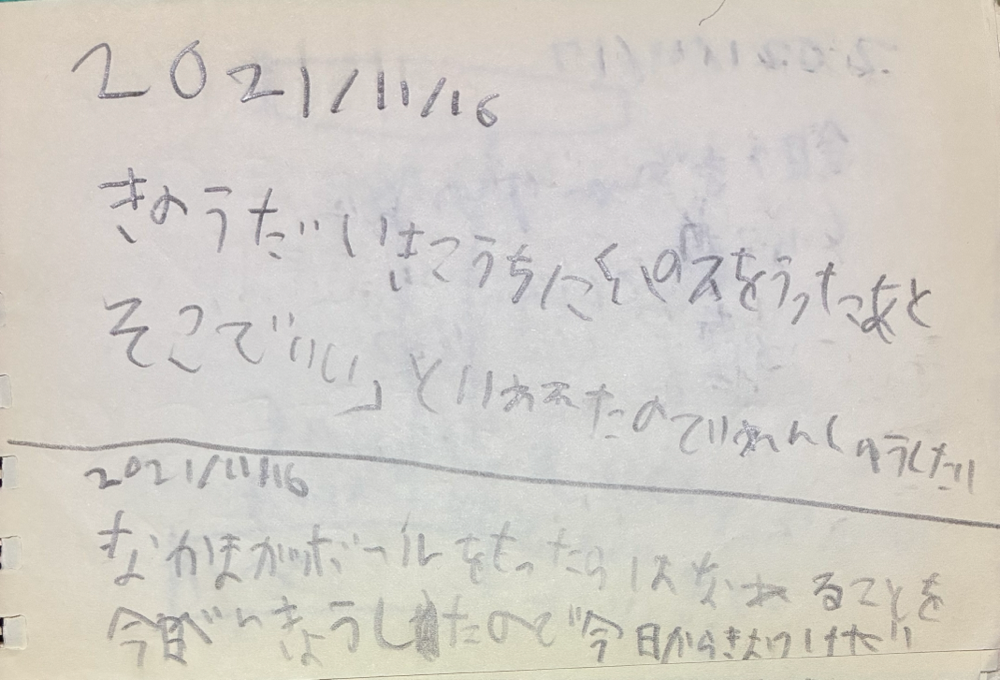 2021/11/16
きのうだいきこうちたくパスをうったあと
そこでいい」といわれたのでれんしゅうしたい
2021/11/16
なかまがボールをもったらはなれることを
今日べんきょうしたので今日からきおつけたい